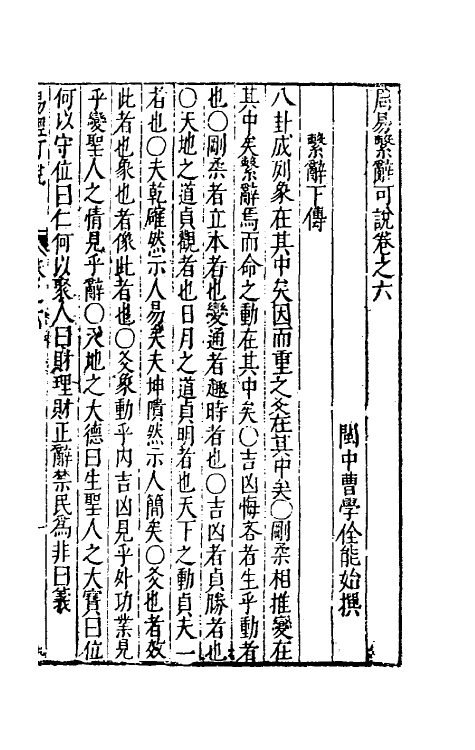 周易繫辭可說卷之六
閩中曹學佺能始撰
繫辭下傳
八卦成列象在其中矣因而重之爻在其中矣○剛柔相推變在
其中矣繫辭焉而命之動在其中矣○吉凶悔吝者生乎動者
也○剛柔者立本者也變通者趣時者也○吉凶者貞勝者也
○天地之道貞觀者也日月之道貞明者也天下之動貞夫一
者也○夫乾確然示人易矣夫坤隤然示人簡矣○爻也者效
此者也象也者像此者也○爻象動乎內吉凶見乎外功業見
乎變聖人之情見乎辭○天地之大德曰生聖人之大寶曰位
何以守位曰仁何以聚人曰財理財正辭禁民爲非曰義
易經可說